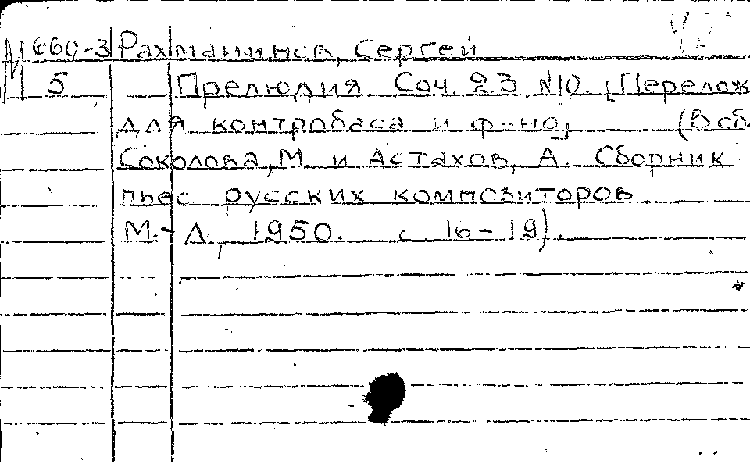 М 660-3 Рахманинов, Сергей
5 Прелюдия. Соч. 23 №10. [Перелож.
для контрабаса и ф-но] (В сб.
Соколова, М. и Астахов, А. Сборник
пьес русских композиторов.
М.-Л., 1950. с 16-19).